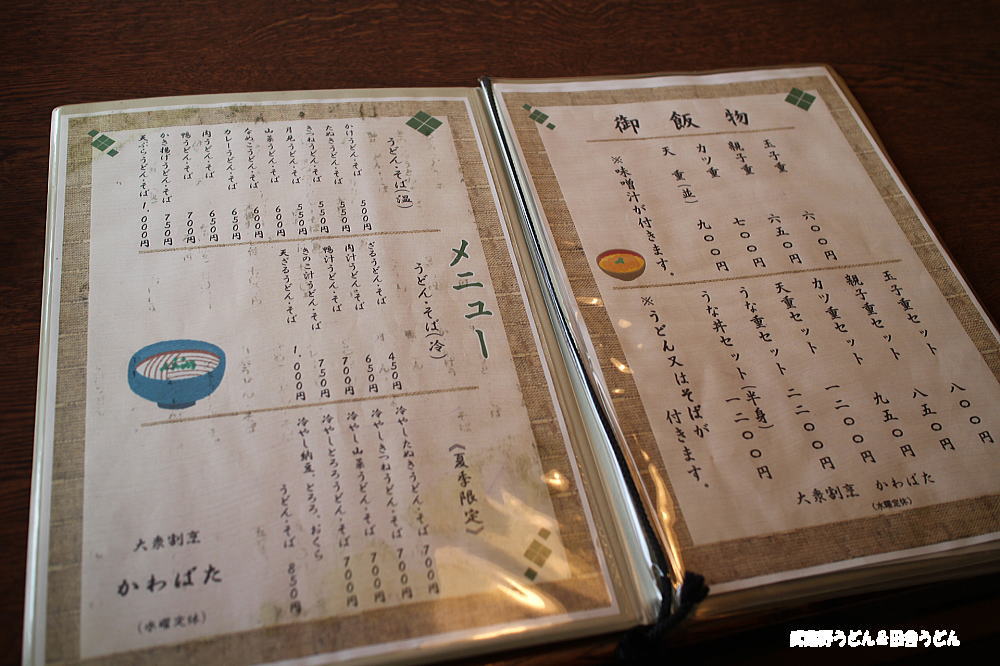 御飯物
玉子重 六〇〇円
親子重 六五〇円
カツ重 七〇〇円
天重(並) 九〇〇円
※味噌汁が付きます。
玉子重セット 八〇〇円
親子重セット 八五〇円
カツ重セット 九五〇円
天重セット 一二〇〇円
うな重セット 二二〇〇円
うな丼セット(半身) 一二〇〇円
※うどん又はそばが
付きます。
大衆割烹 かわばた
(水曜定休)
メニュー
うどん・そば(温)
かけうどん・そば 500円
たぬきうどん・そば 550円
きつねうどん・そば 550円
月見うどん・そば 550円
山菜うどん・そば 600円
なめこうどん・そば 600円
カレーうどん・そば 650円
肉うどん・そば 650円
鴨うどん・そば 700円
かき揚げうどん・そば 750円
天ぷらうどん・そば 1,000円
うどん・そば(冷)
ざるうどん・そば 450円
肉汁うどん・そば 650円
鴨汁うどん・そば 700円
きのこ汁うどん・そば 750円
天ざるうどん・そば 1,000円
《夏季限定》
冷やしたぬきうどん・そば 700円
冷やしきつねうどん・そば 700円
冷やし山菜うどん・そば 700円
冷やしとろろうどん・そば 700円
冷やし納豆、とろろ、おくら
うどん・そば 850円
大衆割烹
かわばた
(水曜定休)
武蔵野うどん&田舎うどん